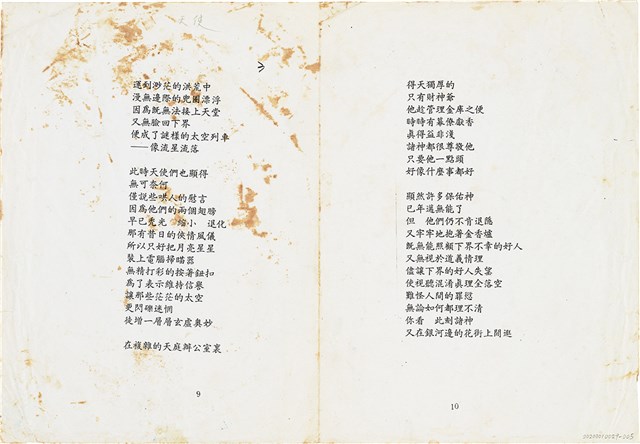 天使
遇到渺茫的洪荒中
漫無邊際的兜圈漂浮
因為既無法接上天堂
又無臉回下界
便成了謎樣的太空列車
——像流星流落
此時天使們也顯得
無可奈何
僅說些哄人的慰言
因為他們的兩個翅膀
早已禿光 縮小 退化
那有昔日的俠情風儀
所以只好把月亮星星
裝上電腦掃瞄器
無精打彩的按著鈕扣
為了表示維持信譽
讓那些茫茫的太空
更閃礫迷惘
徒增一層層玄虛奧妙
在複雜的天庭辦公室裏
9
得天獨厚的
只有財神爺
他趁管理金庫之便
時時有幕僚獻香
真得益非淺
諸神都很尊敬他
只要他一點頭
好像什麼事都好
顯然許多保佑神
已年邁無能了
但 他們仍不肯退隱
又牢牢地抱著金香爐
既無能照顧下界不幸的好人
又無視於道義情理
儘讓下界的好人失望
使視聽混淆真理全落空
難怪人間的罪愆
無論如何都理不清
你看 此刻諸神
又在銀河邊的花街上閒逛
10